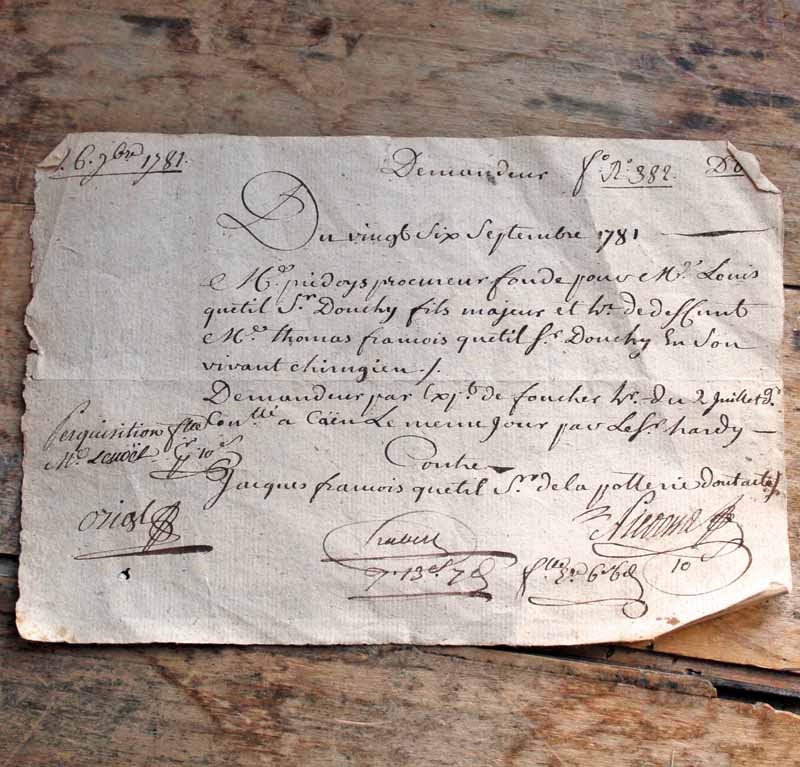 6. 7bre 1781.
Demandeur
fo. No. 382.
Du vingt Six Septembre 1781
Me. piedoys procureur fondé pour Mr. Louis
quetil Sr. Douchy fils majeur et hr. de deffunt
Me. thomas francois quetil Sr. Douchy En Son
vivant chirugien /.
Demandeur par Expt. de foucher hr. du 2 juillet dr.
Conllé a Caën Le meme Jour par Le Sr. hardy
Contre
Jacques francois quetil Sr. de la potterie dont acte
Perquisition
Me. Lenoël 10 s
origl
7. 13s. 7d
10 s